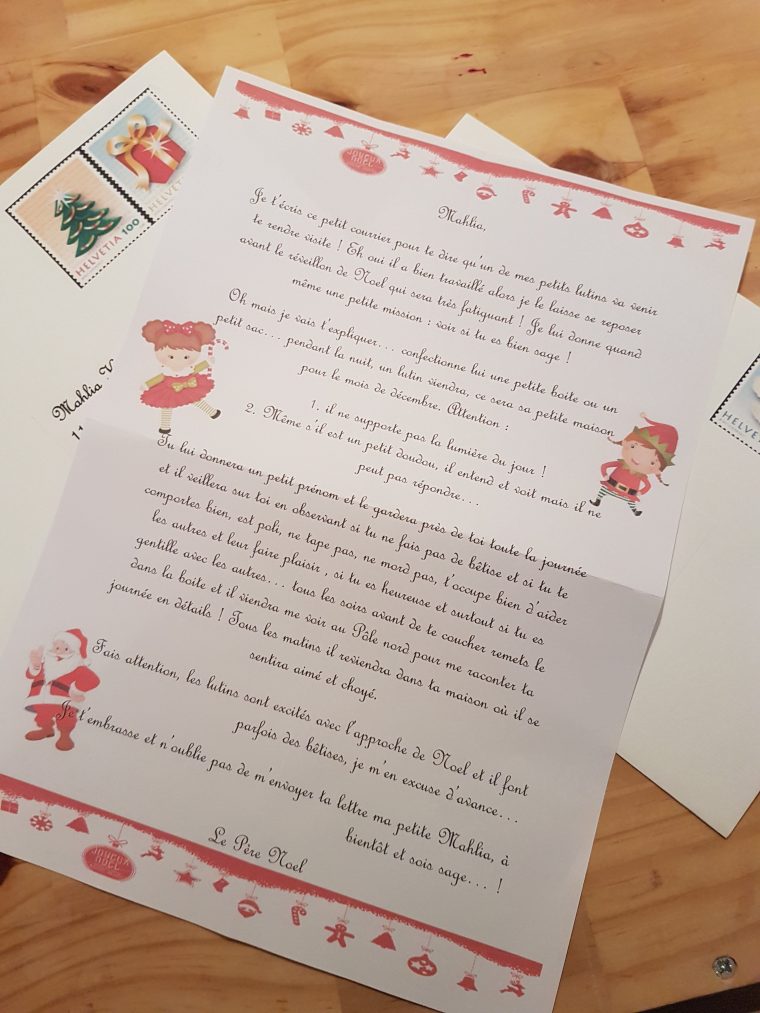 JOYEUX NOËL
Mahlia,
Je t'écris ce petit courrier pour te dire qu'un de mes petits lutins va venir
te rendre visite ! Eh oui il a bien travaillé alors je le laisse se reposer
avant le réveillon de Noel qui sera très fatiguant ! Je lui donne quand
même une petite mission : voir si tu es bien sage !
Oh mais je vais t'expliquer... confectionne lui une petite boite ou un
petit sac... pendant la nuit, un lutin viendra, ce sera sa petite maison
pour le mois de décembre. Attention :
1. il ne supporte pas la lumière du jour !
2. Même s'il est un petit doudou, il entend et voit mais il ne
peut pas répondre...
Tu lui donnera un petit prénom et le gardera près de toi toute la journée
et il veillera sur toi en observant si tu ne fais pas de bêtise et si tu te
comportes bien, est poli, ne tape pas, ne mord pas, t'occupe bien d'aider
les autres et leur faire plaisir , si tu es heureuse et surtout si tu es
gentille avec les autres... tous les soirs avant de te coucher remets le
dans la boite et il viendra me voir au Pôle nord pour me raconter ta
journée en détails ! Tous les matins il reviendra dans ta maison où il se
sentira aimé et choyé.
Fais attention, les lutins sont excités avec l'approche de Noel et il font
parfois des bêtises, je m'en excuse d'avance...
Je t'embrasse et n'oublie pas de m'envoyer ta lettre ma petite Mahlia, à
bientôt et sois sage... !
Le Père Noel
JOYEUX NOËL
HELVETIA 100
HELVETIA
Mahlia V
11
HELVE